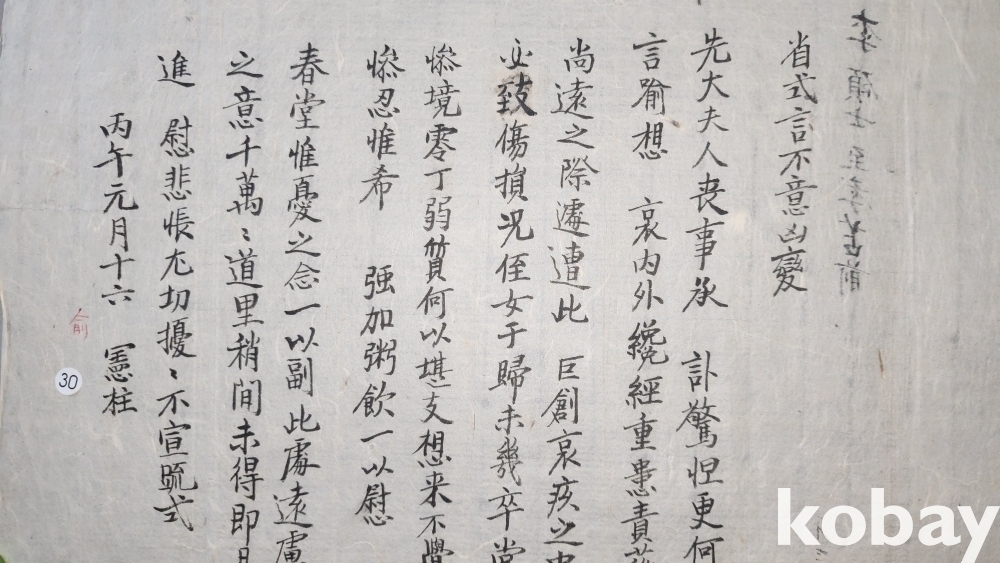 省式言不意凶變
先大夫人喪事承 訃驚怛更何
言喩想 哀內外纔經重患責
尚遠之際遽遭此 巨創哀疚之
必致傷損況侄女于歸未幾卒當
慘境零丁弱質何以堪支想來不覺
慘忍惟希 强加粥飮一以慰
春堂惟憂之念一以副此處遠慮
之意千萬〻道里稍間未得卽
進 慰悲悵尤切擾〻不宣䟽式
丙午元月十六 憲柱
俞
30
kobay